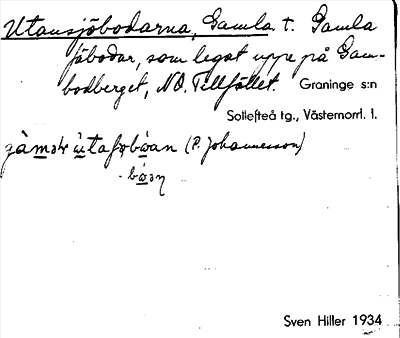 Utansjöbodarna, Gamla t. Gamla
fäbodar, som legat uppe på Gam-
bodberget, NO. Tillfället. Graninge s:n
Sollefteå tg., Västernorrl. l.
(P. Johannesson)
Sven Hiller 1934